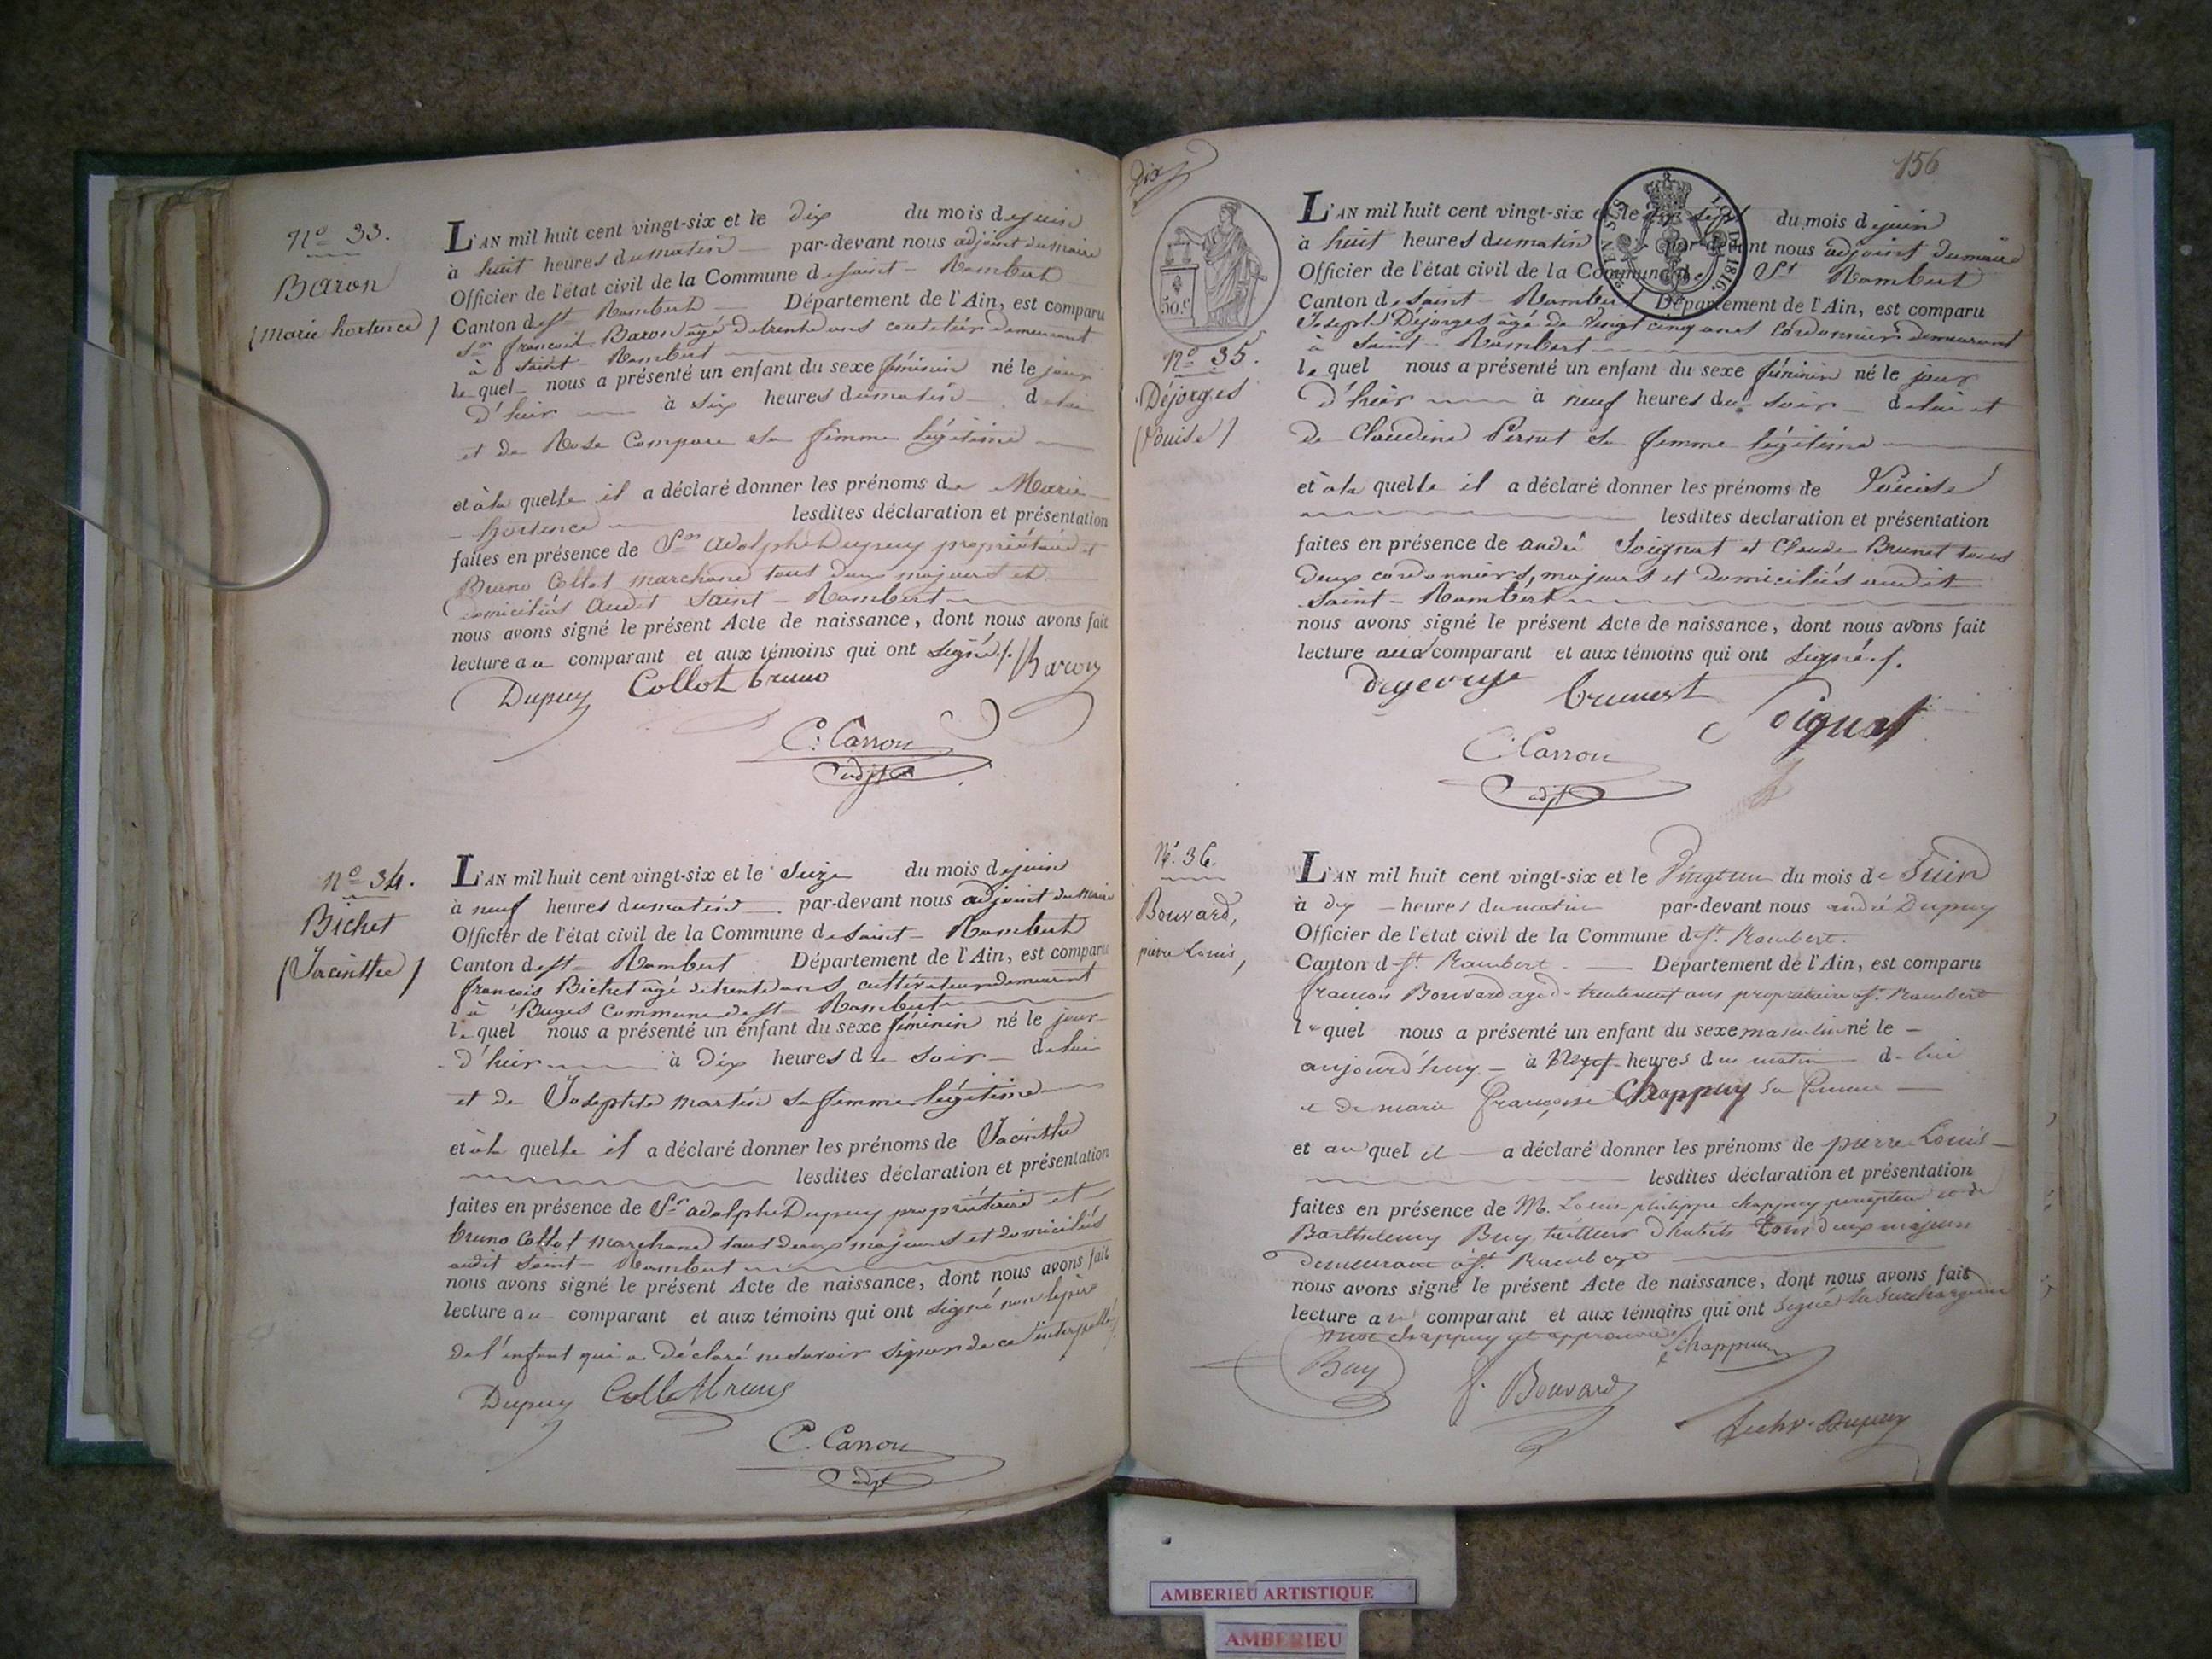 N.o 33.
Baron
(Marie hortence)
L'AN mil huit cent vingt-six et le dix du mois de juin
à huit heures du matin par-devant nous adjoint du maire
Officier de l'état civil de la Commune de saint-Rambert
Canton de St Rambert Département de l'Ain, est comparu
Sr françois Baron âgé de trente ans demeurant
à saint-Rambert
le quel nous a présenté un enfant du sexe féminin né le jour
d'hier à six heures du matin de lui
et de Rose Compare sa femme légitime
et à la quelle il a déclaré donner les prénoms de Marie
hortence lesdites déclaration et présentation
faites en présence de Srs adolphe Dupuy propriétaire et
Bruno Collot marchand tous deux majeurs et
domiciliés audit saint-Rambert
nous avons signé le présent Acte de naissance, dont nous avons fait
lecture au comparant et aux témoins qui ont signé./. Baron
Dupuy Collot bruno
C. Carrou
adjt
N.o 34.
Bichet
(Jacinthe)
L'AN mil huit cent vingt-six et le seize du mois de juin
à neuf heures du matin par-devant nous adjoint du maire
Officier de l'état civil de la Commune de saint-Rambert
Canton de St Rambert Département de l'Ain, est comparu
françois Bichet âgé de trente ans cultivateur demeurant
à Buges Commune de St Rambert
le quel nous a présenté un enfant du sexe féminin né le jour
d'hier à dix heures du soir de lui
et de Josephte martin sa femme légitime
et à la quelle il a déclaré donner les prénoms de Jacinthe
lesdites déclaration et présentation
faites en présence de Sr adolphe Dupuy propriétaire et
bruno Collot marchand tous deux majeurs et domiciliés
audit saint-Rambert
nous avons signé le présent Acte de naissance, dont nous avons fait
lecture au comparant et aux témoins qui ont signé non le père
de l'enfant qui a déclaré ne savoir signer de ce interpellé
Dupuy Collot bruno
C. Carrou
adjt
dix
156
50 c.
LOI DE 1816.
N.o 35.
Déjorges
(Louise)
L'AN mil huit cent vingt-six et le dix sept du mois de juin
à huit heures du matin par-devant nous adjoint du maire
Officier de l'état civil de la Commune de St Rambert
Canton de saint-Rambert Département de l'Ain, est comparu
Joseph Déjorges âgé de vingt cinq ans Cordonnier demeurant
à saint-Rambert
le quel nous a présenté un enfant du sexe féminin né le jour
d'hier à neuf heures du soir de lui et
de Claudine Pernet sa femme légitime
et à la quelle il a déclaré donner les prénoms de Louise
lesdites declaration et présentation
faites en présence de andré Soignat et Claude Brunet tous
deux cordonniers, majeurs et domiciliés audit
saint-Rambert
nous avons signé le présent Acte de naissance, dont nous avons fait
lecture au comparant et aux témoins qui ont signé./.
brunest Soignat
C. Carrou
adjt
N.o 36.
Bouvard,
pierre Louis,
L'AN mil huit cent vingt-six et le Vingt un du mois de Juin
à dix heures du matin par-devant nous andré Dupuy
Officier de l'état civil de la Commune de St. Rambert.
Canton de St. Rambert. Département de l'Ain, est comparu
françois Bouvard agé de trenteneuf ans propriétaire à St. Rambert
lequel nous a présenté un enfant du sexe masculin né le
aujourd'huy à Neuf heures du matin de lui
et de marie françoise Chappuy sa femme
et au quel il a déclaré donner les prénoms de pierre Louis
lesdites déclaration et présentation
faites en présence de M. Louis philippe chappuy percepteur et de
Barthelemy Buy, tailleur d'habits tous deux majeurs
demeurant à St. Rambert
nous avons signé le présent Acte de naissance, dont nous avons fait
lecture au comparant et aux témoins qui ont signé la surcharge au
mot chappuy est approuvée chappuy
Buy f. Bouvard
Dupuy
AMBERIEU ARTISTIQUE
AMBERIEU